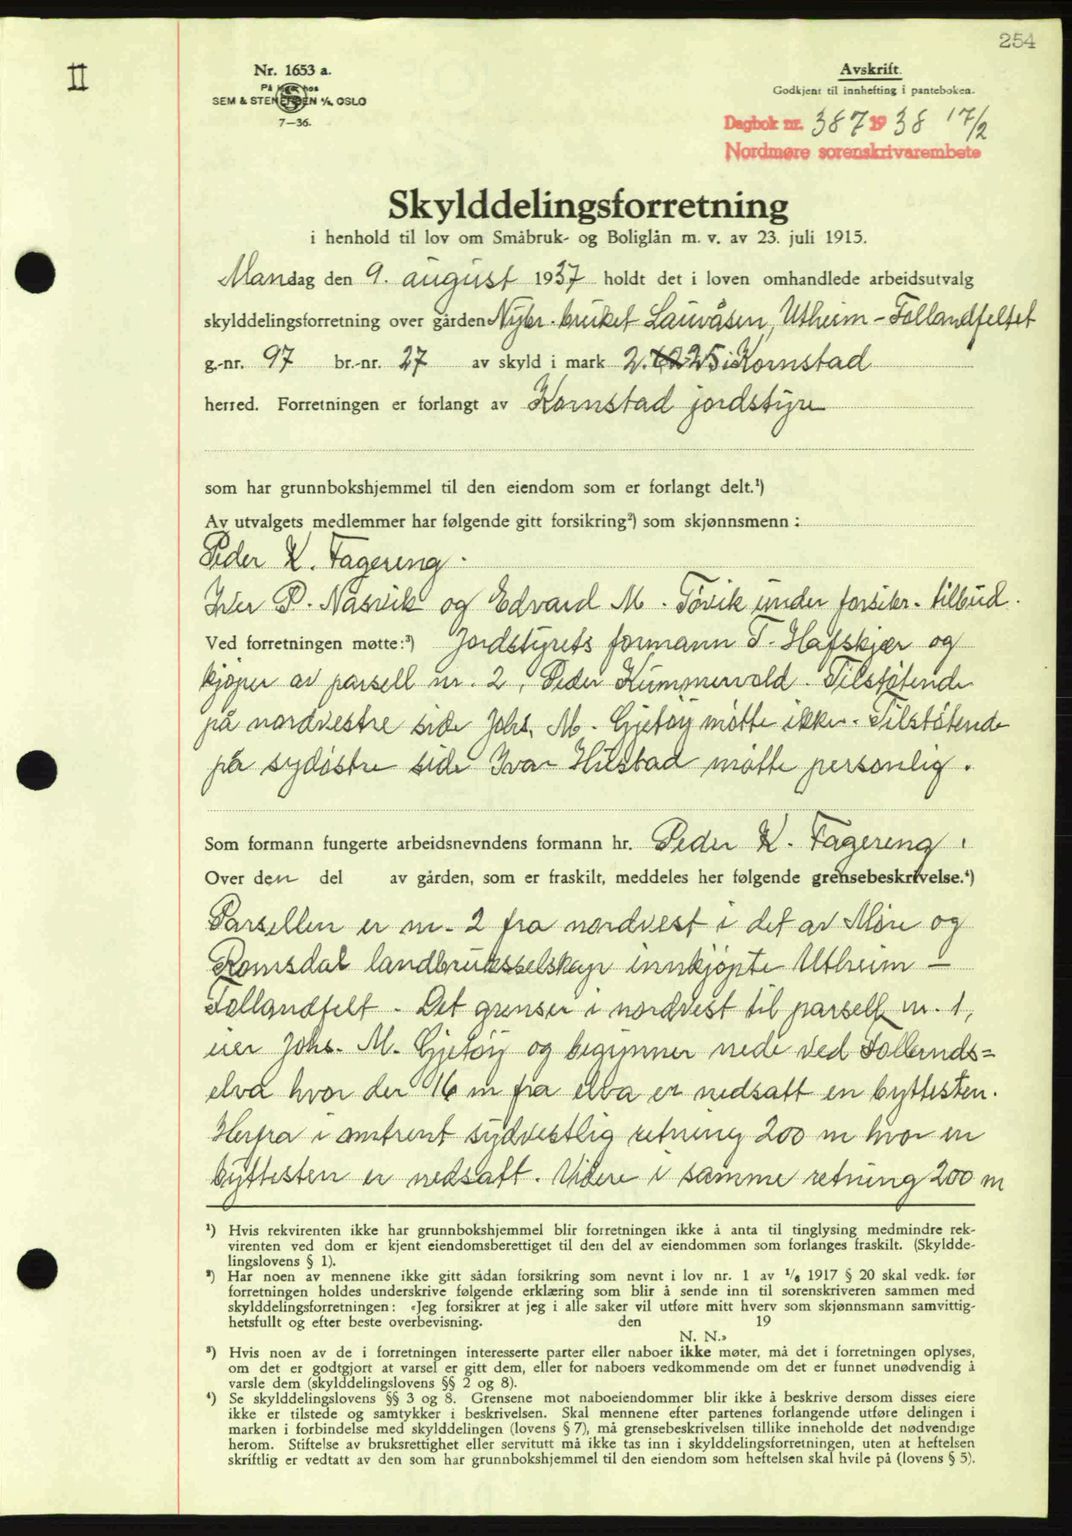 254
II
Nr. 1653 a.
På lager hos
SEM & STENERSEN A/S, OSLO
7—36.
Avskrift.
Godkjent til innhefting i panteboken.
Dagbok nr. 387 1938 17/2
Nordmøre sorenskrivarembete
Skylddelingsforretning
i henhold til lov om Småbruk- og Boliglån m. v. av 23. juli 1915.
Mandag den 9. august 1937 holdt det i loven omhandlede arbeidsutvalg
skylddelingsforretning over gården Nybr. bruket Lauvåsen, Utheim - Follandfeltet
g.-nr. 97 br.-nr. 27 av skyld i mark 2.25 i Kornstad
herred. Forretningen er forlangt av Kornstad jordstyre
som har grunnbokshjemmel til den eiendom som er forlangt delt.¹)
Av utvalgets medlemmer har følgende gitt forsikring²) som skjønnsmenn:
Peder K. Fagereng.
Iver P. Näsvik og Edvard M. Tövik under forsikr. tilbud.
Ved forretningen møtte:³) Jordstyrets formann T. Hafskjær og
kjöper av parsell nr. 2, Peder Kummervold. Tilstötende
på nordvestre side Johs. M. Gjetöy mötte ikke. Tilstötende
på sydöstre side Ivar Hustad mötte personlig.
Som formann fungerte arbeidsnevndens formann hr. Peder K. Fagereng.
Over den del av gården, som er fraskilt, meddeles her følgende grensebeskrivelse.⁴)
Parsellen er nr. 2 fra nordvest i det av Möre og
Romsdal landbruksselskap innkjöpte Utheim -
Follandfelt. Det grenser i nordvest til parsell nr. 1,
eier Johs. M. Gjetöy og begynner nede ved Follands=
elva hvor der 16 m fra elva er nedsatt en byttesten.
Herfra i omtrent sydvestlig retning 200 m hvor en
byttesten er nedsatt. Videre i samme retning 200 m
¹) Hvis rekvirenten ikke har grunnbokshjemmel blir forretningen ikke å anta til tinglysing medmindre rek-
virenten ved dom er kjent eiendomsberettiget til den del av eiendommen som forlanges fraskilt. (Skyldde-
lingslovens § 1).
²) Har noen av mennene ikke gitt sådan forsikring som nevnt i lov nr. 1 av 1/6 1917 § 20 skal vedk. før
forretningen holdes underskrive følgende erklæring som blir å sende inn til sorenskriveren sammen med
skylddelingsforretningen: «Jeg forsikrer at jeg i alle saker vil utføre mitt hverv som skjønnsmann samvittig-
hetsfullt og efter beste overbevisning. den 19
N. N.»
³) Hvis noen av de i forretningen interesserte parter eller naboer ikke møter, må det i forretningen oplyses,
om det er godtgjort at varsel er gitt dem, eller for naboers vedkommende om det er funnet unødvendig å
varsle dem (skylddelingslovens §§ 2 og 8).
⁴) Se skylddelingslovens §§ 3 og 8. Grensene mot naboeiendommer blir ikke å beskrive dersom disses eiere
ikke er tilstede og samtykker i beskrivelsen. Skal mennene efter partenes forlangende utføre delingen i
marken i forbindelse med skylddelingen (lovens § 7), må grensebeskrivelsen tillike inneholde det nødvendige
herom. Stiftelse av bruksrettighet eller servitutt må ikke tas inn i skylddelingsforretningen, uten at heftelsen
skriftlig er vedtatt av den som har grunnbokshjemmel til den eiendom som heftelsen skal hvile på (lovens § 5).